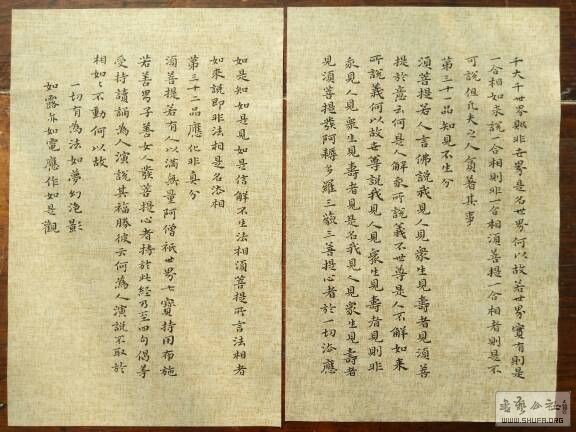 千大千世界即非世界是名世界何以故若世界實有則是
一合相如來說一合相則非一合相須菩提一合相者則是不
可說但凡夫之人貪著其事
第三十一品知見不生分
須菩提若人言佛說我見人見眾生見壽者見須菩
提於意云何是人解我所說義不世尊是人不解如來
所說義何以故世尊說我見人見眾生見壽者見則非
我見人見眾生見壽者見是名我見人見眾生見壽者
見須菩提發阿耨多羅三藐三菩提心者於一切法應
如是知如是見如是信解不生法相須菩提所言法相者
如來說即非法相是名法相
第三十二品應化非真分
須菩提若有人以滿無量阿僧祇世界七寶持用布施
若善男子善女人發菩提心者持於此經乃至四句偈等
受持讀誦為人演說其福勝彼云何為人演說不取於
相如〻不動何以故
一切有為法如夢幻泡影
如露亦如電應作如是觀
WWW.SHUFA.ORG